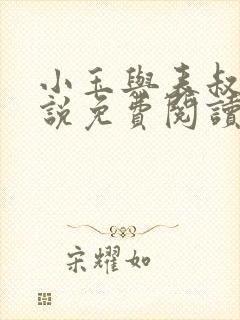 小玉與表叔
說免費閱讀
宋耀如